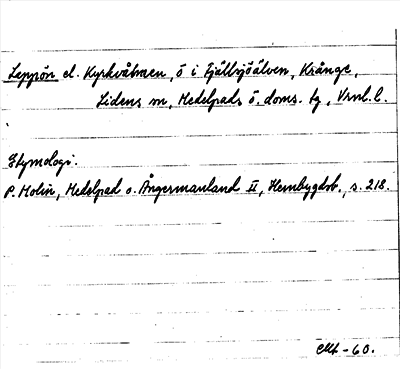 Leppön el. Kyrkvåtmen, ö i Fjällsjöälven, Krånge,
Lidens sn, Medelpads ö. doms. tg, Vrnl. l.
Etymologi.
P. Molin, Medelpad o. Ångermanland II, Hembygdsb., s. 218.
-60.